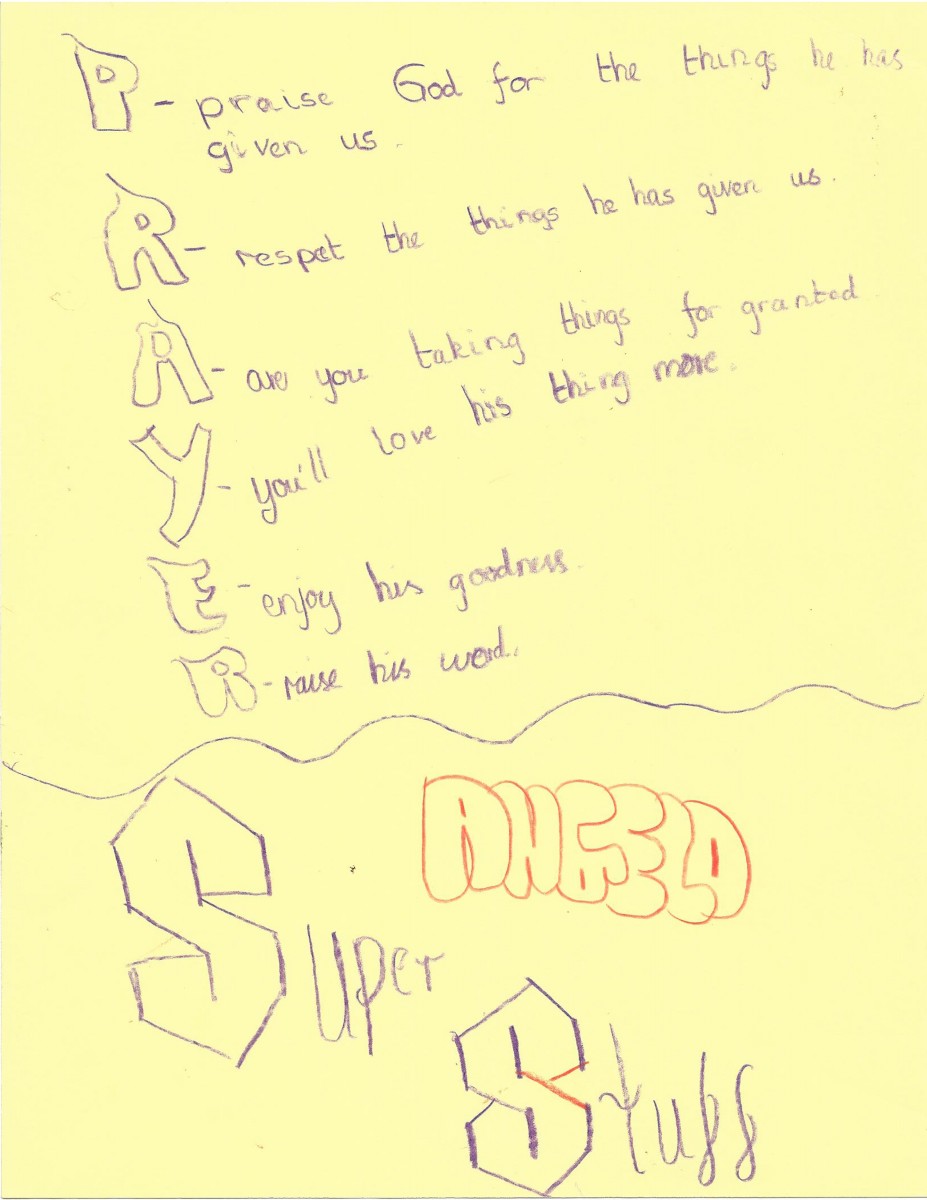 P - praise God for the things he has
given us.
R - respet the things he has given us.
A - are you taking things for granted
Y - you'll love his thing more.
E - enjoy his goodness.
R - raise his word.
ANGELA
Super
Stuff